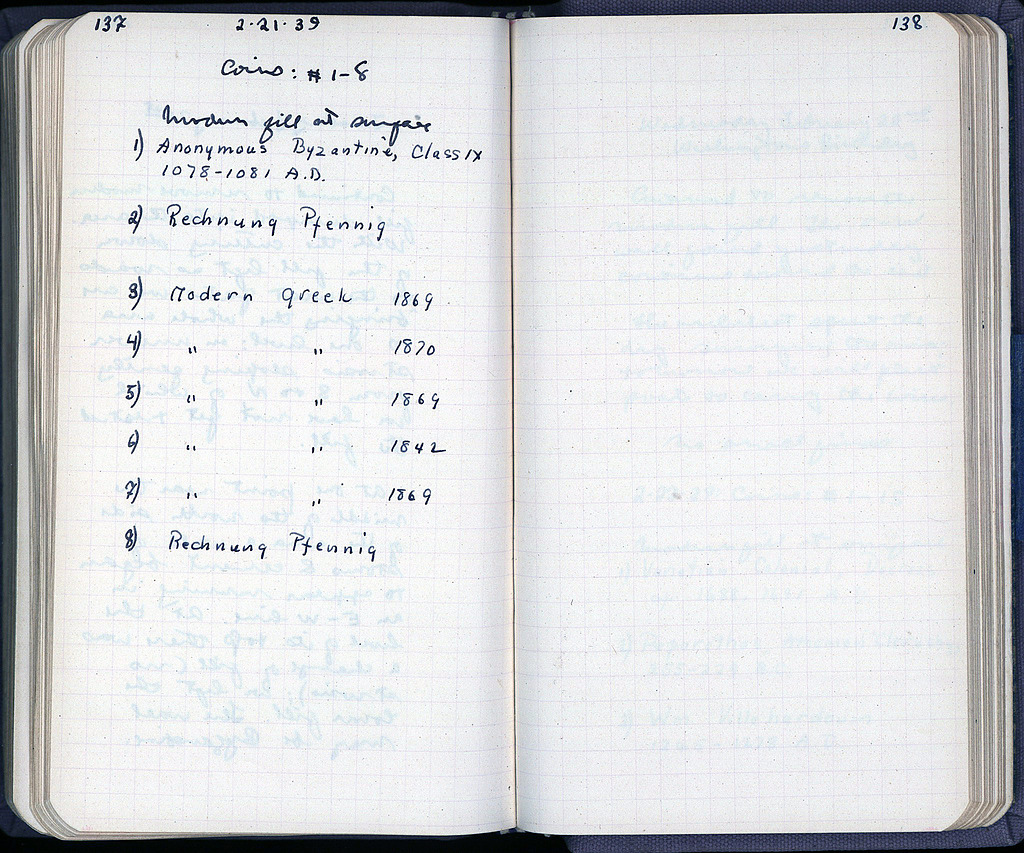 137 2·21·39
Coins: #1-8
Modern fill at surface
1) Anonymous Byzantine, Class IX
1078-1081 A.D.
2) Rechnung Pfennig
3) Modern Greek 1869
4) " " 1870
5) " " 1869
6) " " 1842
7) " " 1869
8) Rechnung Pfennig
138